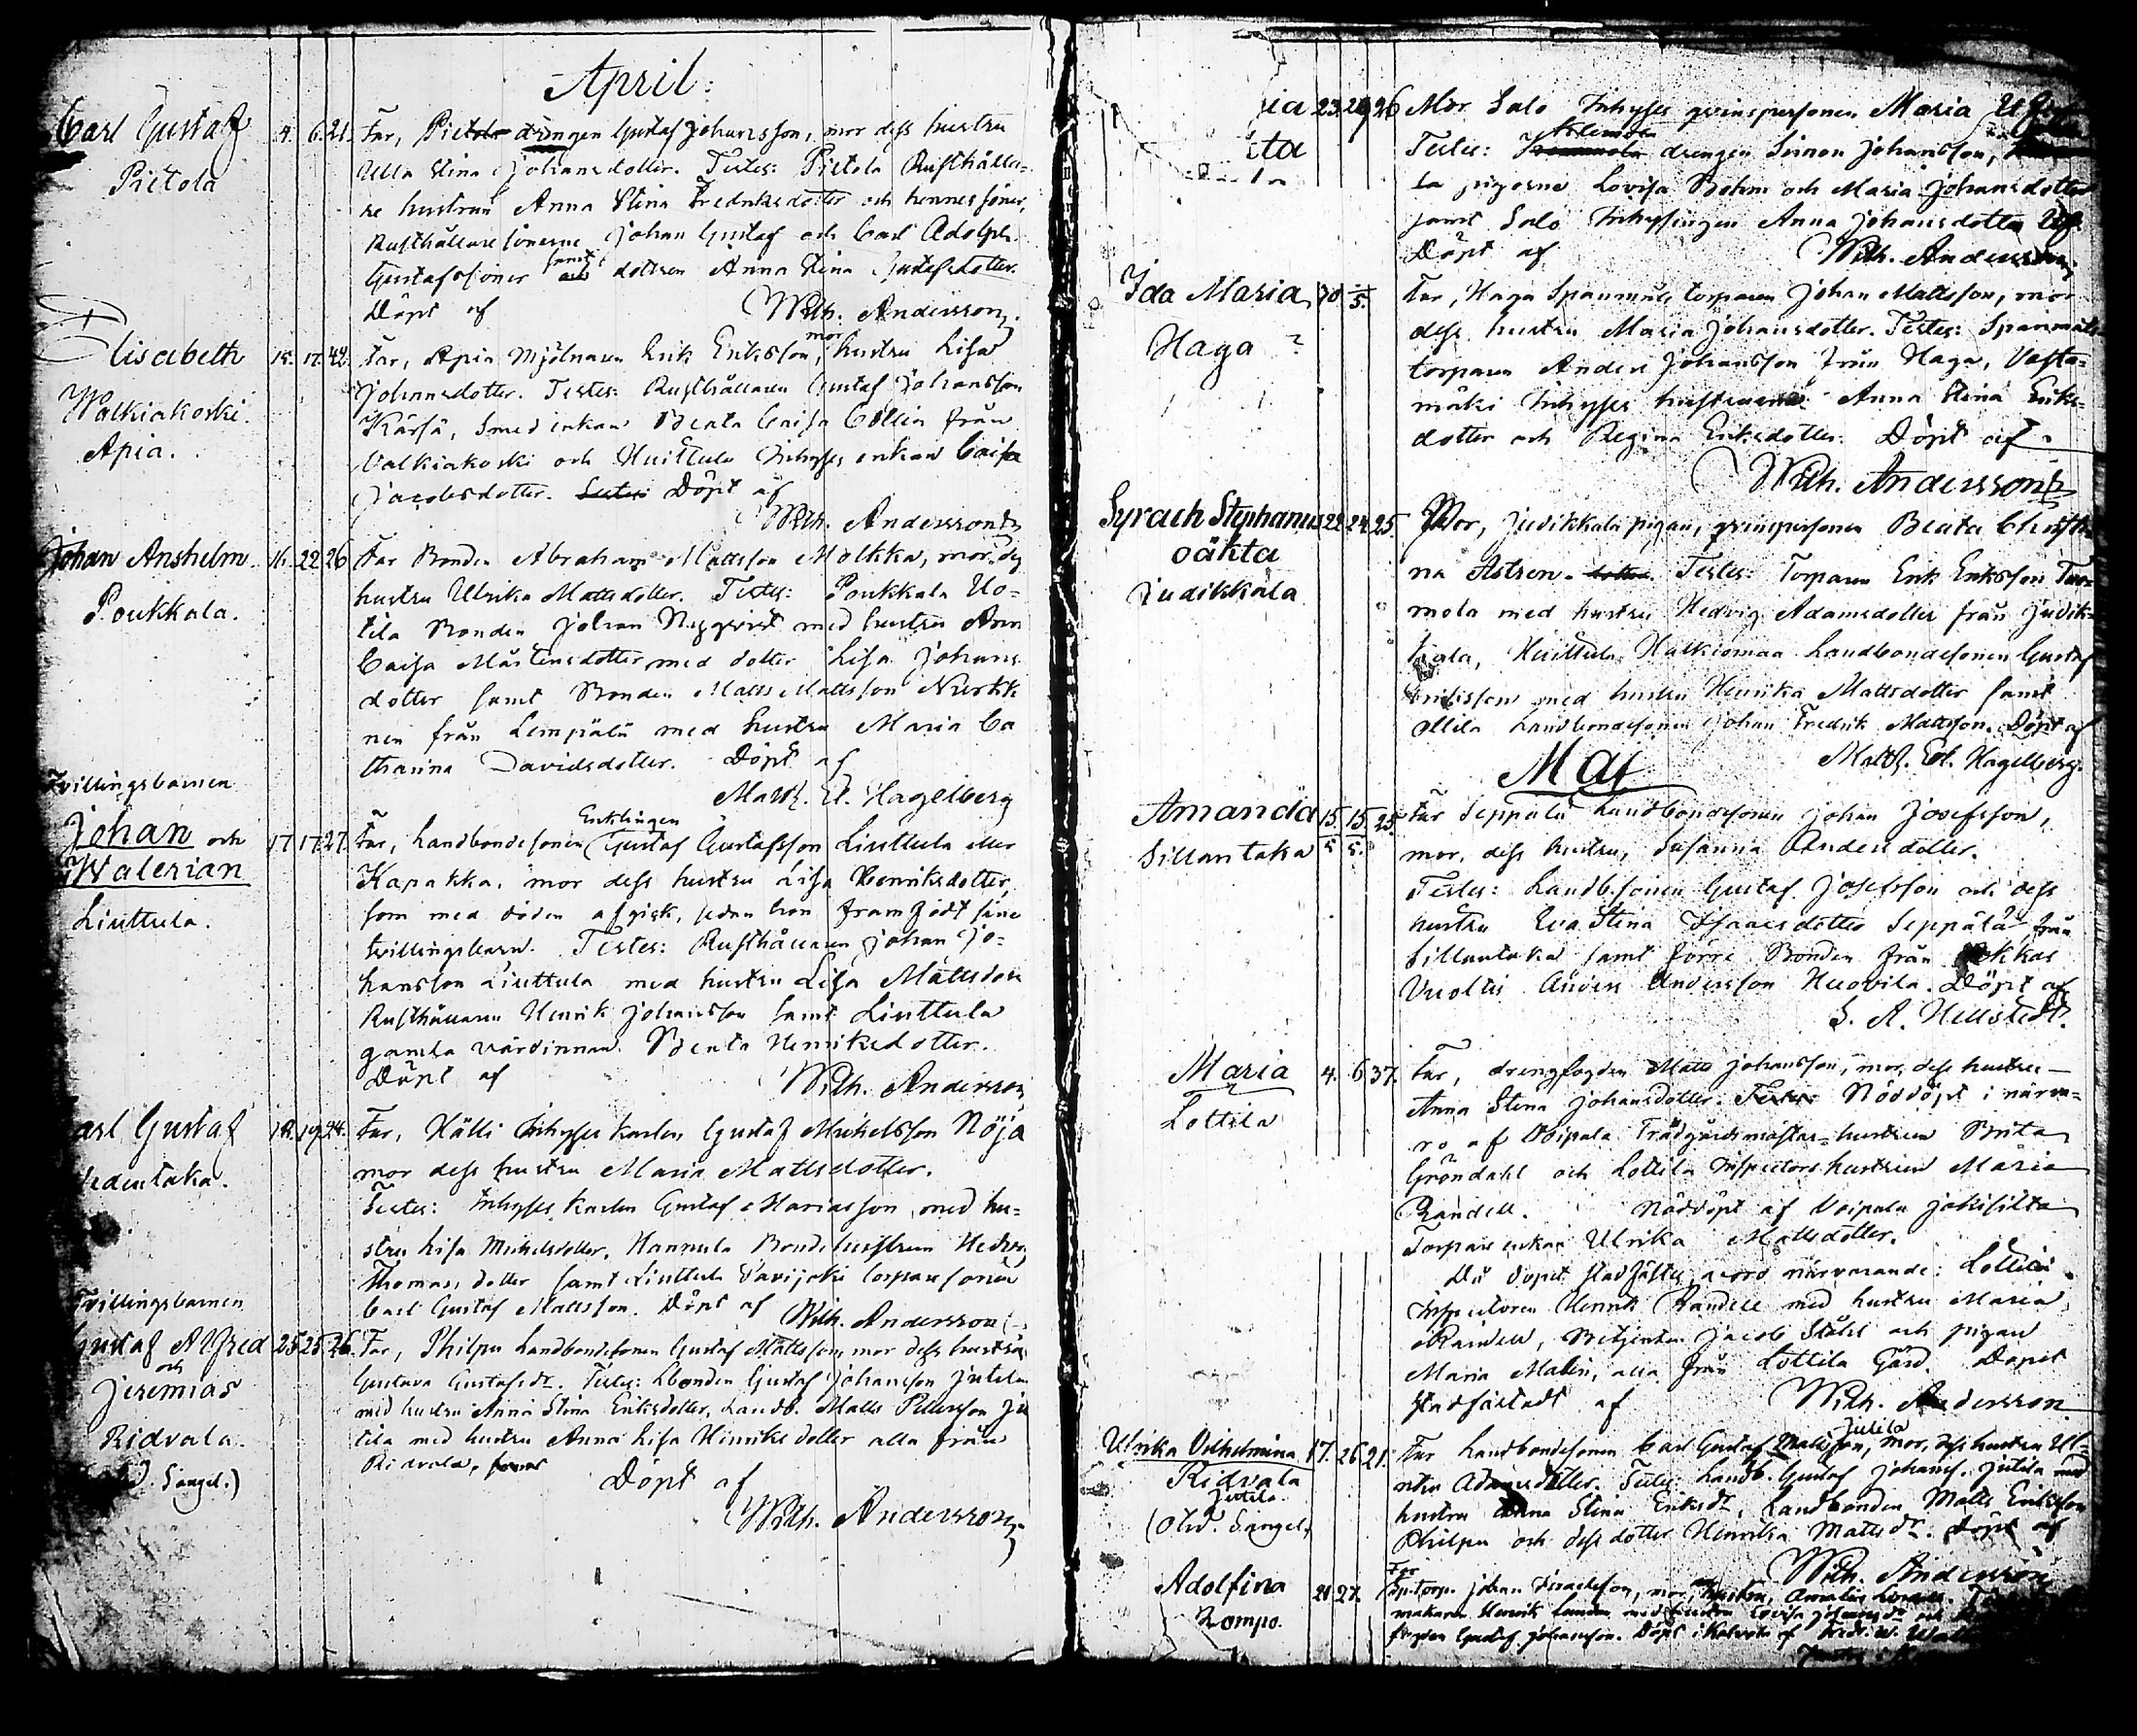 April:
Carl Gustaf 4. 6. 21. Far, Pietola drängen Gustaf Johansson, mor dess hustru
Pietola
Ulla Stina Johansdotter. Testes: Pietola Rusthålla-
re hustrun Anna Stina Fredriksdotter och hennes söner,
Rusthållare sönerne Johan Gustaf och Carl Adolph
Gustafssöner samt dottren Anna Stina Gustafsdotter.
Döpt af Wilh. Andersson.
Elisabeth 15. 17. 42. Far, Apia Mjölnaren Erik Eriksson, mor hustru Lisa
Walkiakoski.
Apia.
Johansdotter. Testes: Rusthållaren Gustaf Johansson
Kärsä, Smed enkan Beata Caisa Collin från
Valkiakoski och Huittula Inhyses enkan Caisa
Jacobsdotter. Döpt af
Wilh. Andersson
Johan Anshelm. 16. 22. 26. Far Bonden Abraham Mattsson Molkka, mor dess
Poukkala.
hustru Ulrika Mattsdotter. Testes: Poukkala Uo-
tila Bonden Johan Nygqvist med hustru Ann
Caisa Mårtensdotter med dotter Lisa Johans
dotter samt Bonden Matts Mattsson Nurkk
nen från Lempälä med hustru Maria Ca
tharina Davidsdotter. Döpt af
Matth. El. Hagelberg
Tvillingsbarnen
Johan och
Walerian
Liuttula.
17. 17. 27. Far, Landbondesonen Enklingen Gustaf Gustafsson Liuttula eller
Kapakka, mor dess hustru Lisa Henriksdotter,
som med döden afgick, sedan hon framfödt sina
tvillingsbarn. Testes: Rusthållaren Johan Jo-
hansson Liuttula med hustru Lisa Mattsdotter
Rusthållaren Henrik Johansson samt Liuttula
gamla värdinnan Beata Henriksdotter.
Döpt af Wilh. Andersson
arl Gustaf 18. 19. 24. Far, Hälli Inhyses karlen Gustaf Michelsson Nöjd
edentaka.
mor dess hustru Maria Mattsdotter.
Testes: Inhyses karlen Gustaf Mariasson, med hu-
stru Lisa Michelsdotter, Hannula Bondehustrun Hedvig
Thomas dotter samt Liuttula Savijoki torpare sonen
Carl Gustaf Mattsson. Döpt af Wilh. Andersson
Tvillingsbarnen
Gustaf Alfred
och
Jeremias
Ridvala.
. Sängel.)
25. 25. 26. Far, Philpu Landbondesonen Gustaf Mattsson, mor dess hustru
Gustava Gustafsdr. Testes: Lbonden Gustaf Johansson Jutila
med hustru Anna Stina Eriksdotter, Landb. Matts Pettersson Ju
tila med hustru Anna Lisa Henriksdotter alla från
Ridvala,
Döpt af
Wilh. Andersson
ia 23. 29. 26 Mor Salo Inhyses qvinspersonen Maria
ta
Testes: drengen Simon Johansson,
la pigorna Lovisa Bohm och Maria Johansdotter
samt Salo Inhysingen Anna Johansdotter
Döpt af Wilh. Andersson
Ida Maria 70 5. Far, Haga Spanmåls torparen Johan Mattsson, mor
Haga ?
dess hustru Maria Johansdotter. Testes: Spanmåls
torparen Anders Johansson från Haga, Vasta-
mäki Inhyses hustrurna Anna Stina Eriks-
dotter och Regina Eriksdotter. Döpt af
Wilh. Andersson
Syrach Stephanus 22. 24. 25. Mor, Judikkala pigan, qvinspersonen Beata Christi
oäkta
Judikkala
na Astren. Testes: Torparen Erik Eriksson Tuo-
mola med hustru Hedvig Adamsdotter från Judik-
kala, Huittula Halkiomaa Landbondesonen Gustaf
med hustru Henrika Mattsdotter samt
Ollila Landbondesonen Johan Fredrik Mattsson. Döpt af
Matth. El. Hagelberg.
Maj
Amanda 15/5 15/5. 25. Far Seppälä Landbondesonen Johan Josefsson,
Sillantaka
mor, dess hustru, Susanna Andersdotter.
Testes: Landb.sonen Gustaf Josefsson och dess
hustru Eva Stina Isaacsdotter Seppälä från
Sillantaka samt förre Bonden från
Vuoltis Anders Andersson Huovila. Döpt af
S. A. Hellstedt.
Maria 4. 6. 37. Far, drengfogden Matts Johansson, mor, dess hustru
Lottila
Anna Stina Johansdotter. Nöddöpt i närva-
ro af Voipala Trädgårdsmästar-hustrun Brita
Gröndahl och Lottila Inspectors hustrun Maria
Randell. Nöddöpt af Voipala Jokisilta
Torpare enkan Ulrika Mattsdotter.
Då dopet stadfästes, voro närvarande: Lottila
Inspectoren Henrik Randell med hustru Maria
Randell, Betjenten Jacob Ståhl och pigan
Maria Malin, alla från Lottila Gård. Dopet
stadfästadt af Wilh. Andersson
Ulrika Vilhelmina 17. 26. 21. Far Landbondesonen Carl Gustaf Mattsson Jutila, mor, dess hustru Ul-
Ridvala
Jutila.
(Olw. Sängel.)
rika Adamsdotter. Testes: Landb. Gustaf Johanss. Jutila med
hustru Anna Stina Eriksdr, Landbonden Matts Eriksson
Philpu och dess dotter Henrika Mattsdr. Döpt af
Wilh. Andersson
Adolfina 21. 27. Far Sp.torp. Johan Israelsson, mor, hustru,
Zompo.
makaren Henrik med hustru Lovisa Johansdr och
fogden Gustaf Johansson. Döpt i Kalvola af